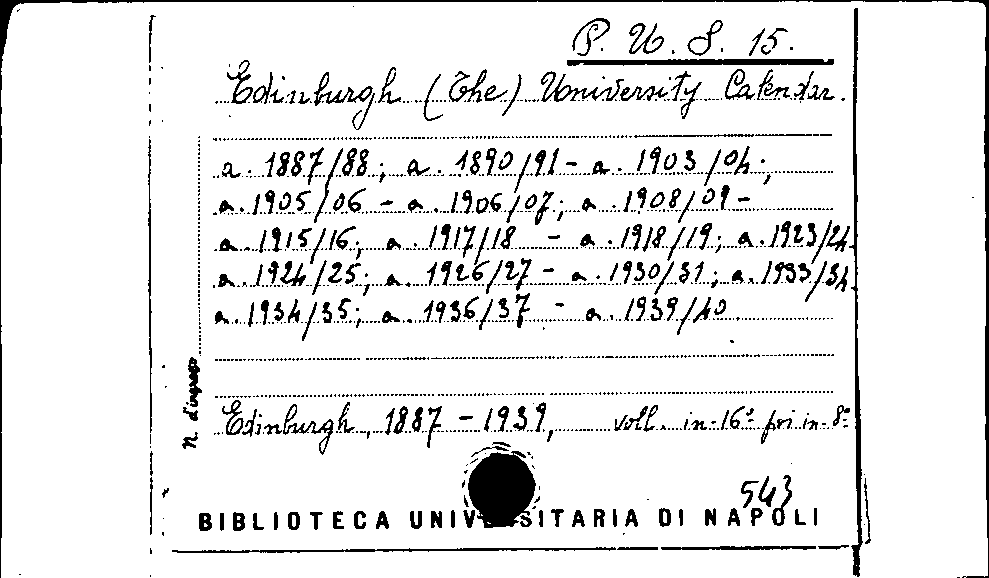 P. U. S. 15.
Edinburgh (The) University Calendar.
a. 1887/88; a. 1890/91 - a. 1903/04;
a. 1905/06 - a. 1906/07; a. 1908/09 -
a. 1915/16; a. 1917/18 - a. 1918/19; a. 1923/24
a. 1924/25; a. 1926/27 - a. 1930/31; a. 1933/34
a. 1934/35; a. 1936/37 - a. 1939/40
N. d'ingresso
Edinburgh, 1887 - 1939, voll. in-16° poi in-8°
543
BIBLIOTECA UNIVERSITARIA DI NAPOLI